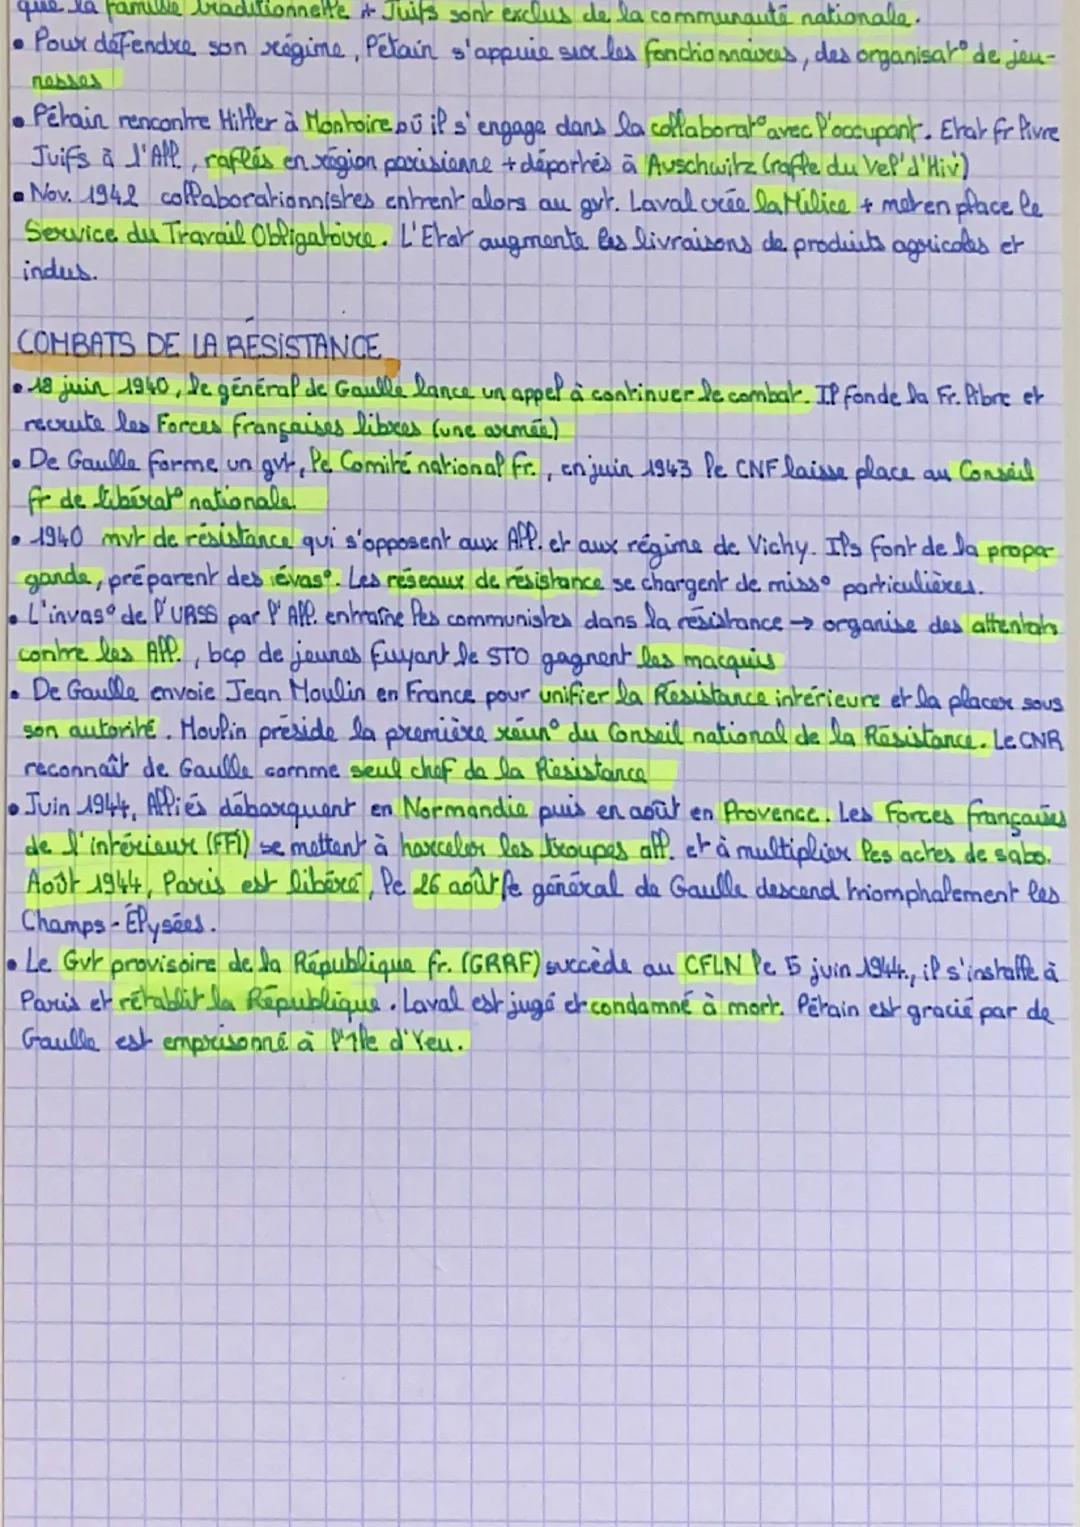 que la famille traditionnelle + Juifs sont exclus de la communauté nationale.
• Pour défendre son régime, Pétain s'appuie sur les fonctionnaires, des organisat° de jeu-
nesses
• Pétain rencontre Hitler à Montoire où il s'engage dans la collaborat° avec l'occupant. Etat fr livre
Juifs à l'All., raflés en région parisienne + déportés à Auschwitz (rafle du Vel'd'Hiv)
• Nov. 1942 collaborationnistes entrent alors au gvt. Laval crée la Milice + met en place le
Service du Travail Obligatoire. L'Etat augmente les livraisons de produits agricoles et
indus.
COMBATS DE LA RÉSISTANCE
• 18 juin 1940, le général de Gaulle lance un appel à continuer le combat. Il fonde la Fr. libre et
recrute les Forces françaises libres (une armée)
• De Gaulle forme un gvt, le Comité national fr., en juin 1943 le CNF laisse place au Conseil
fr de libérat° nationale.
• 1940 mvt de résistance qui s'opposent aux All. et aux régime de Vichy. Ils font de la propa-
gande, préparent des évas°. Les réseaux de résistance se chargent de miss° particulières.
• L'invas° de l'URSS par l'All. entraîne les communistes dans la résistance → organise des attentats
contre les All., bcp de jeunes fuyant le STO gagnent les macquis
• De Gaulle envoie Jean Moulin en France pour unifier la Résistance intérieure et la placer sous
son autorité. Moulin préside la première réun° du Conseil national de la Résistance. Le CNR
reconnaît de Gaulle comme seul chef de la Résistance
• Juin 1944, Alliés débarquent en Normandie puis en août en Provence. Les Forces françaises
de l'intérieur (FFI) se mettent à harceler les troupes all. et à multiplier les actes de sabo.
Août 1944, Paris est libéré, le 26 août le général de Gaulle descend triomphalement les
Champs-Élysées.
• Le Gvt provisoire de la République fr. (GRRF) succède au CFLN le 5 juin 1944, il s'installe à
Paris et rétablit la République. Laval est jugé et condamné à mort. Pétain est gracié par de
Gaulle est emprisonné à l'île d'Yeu.